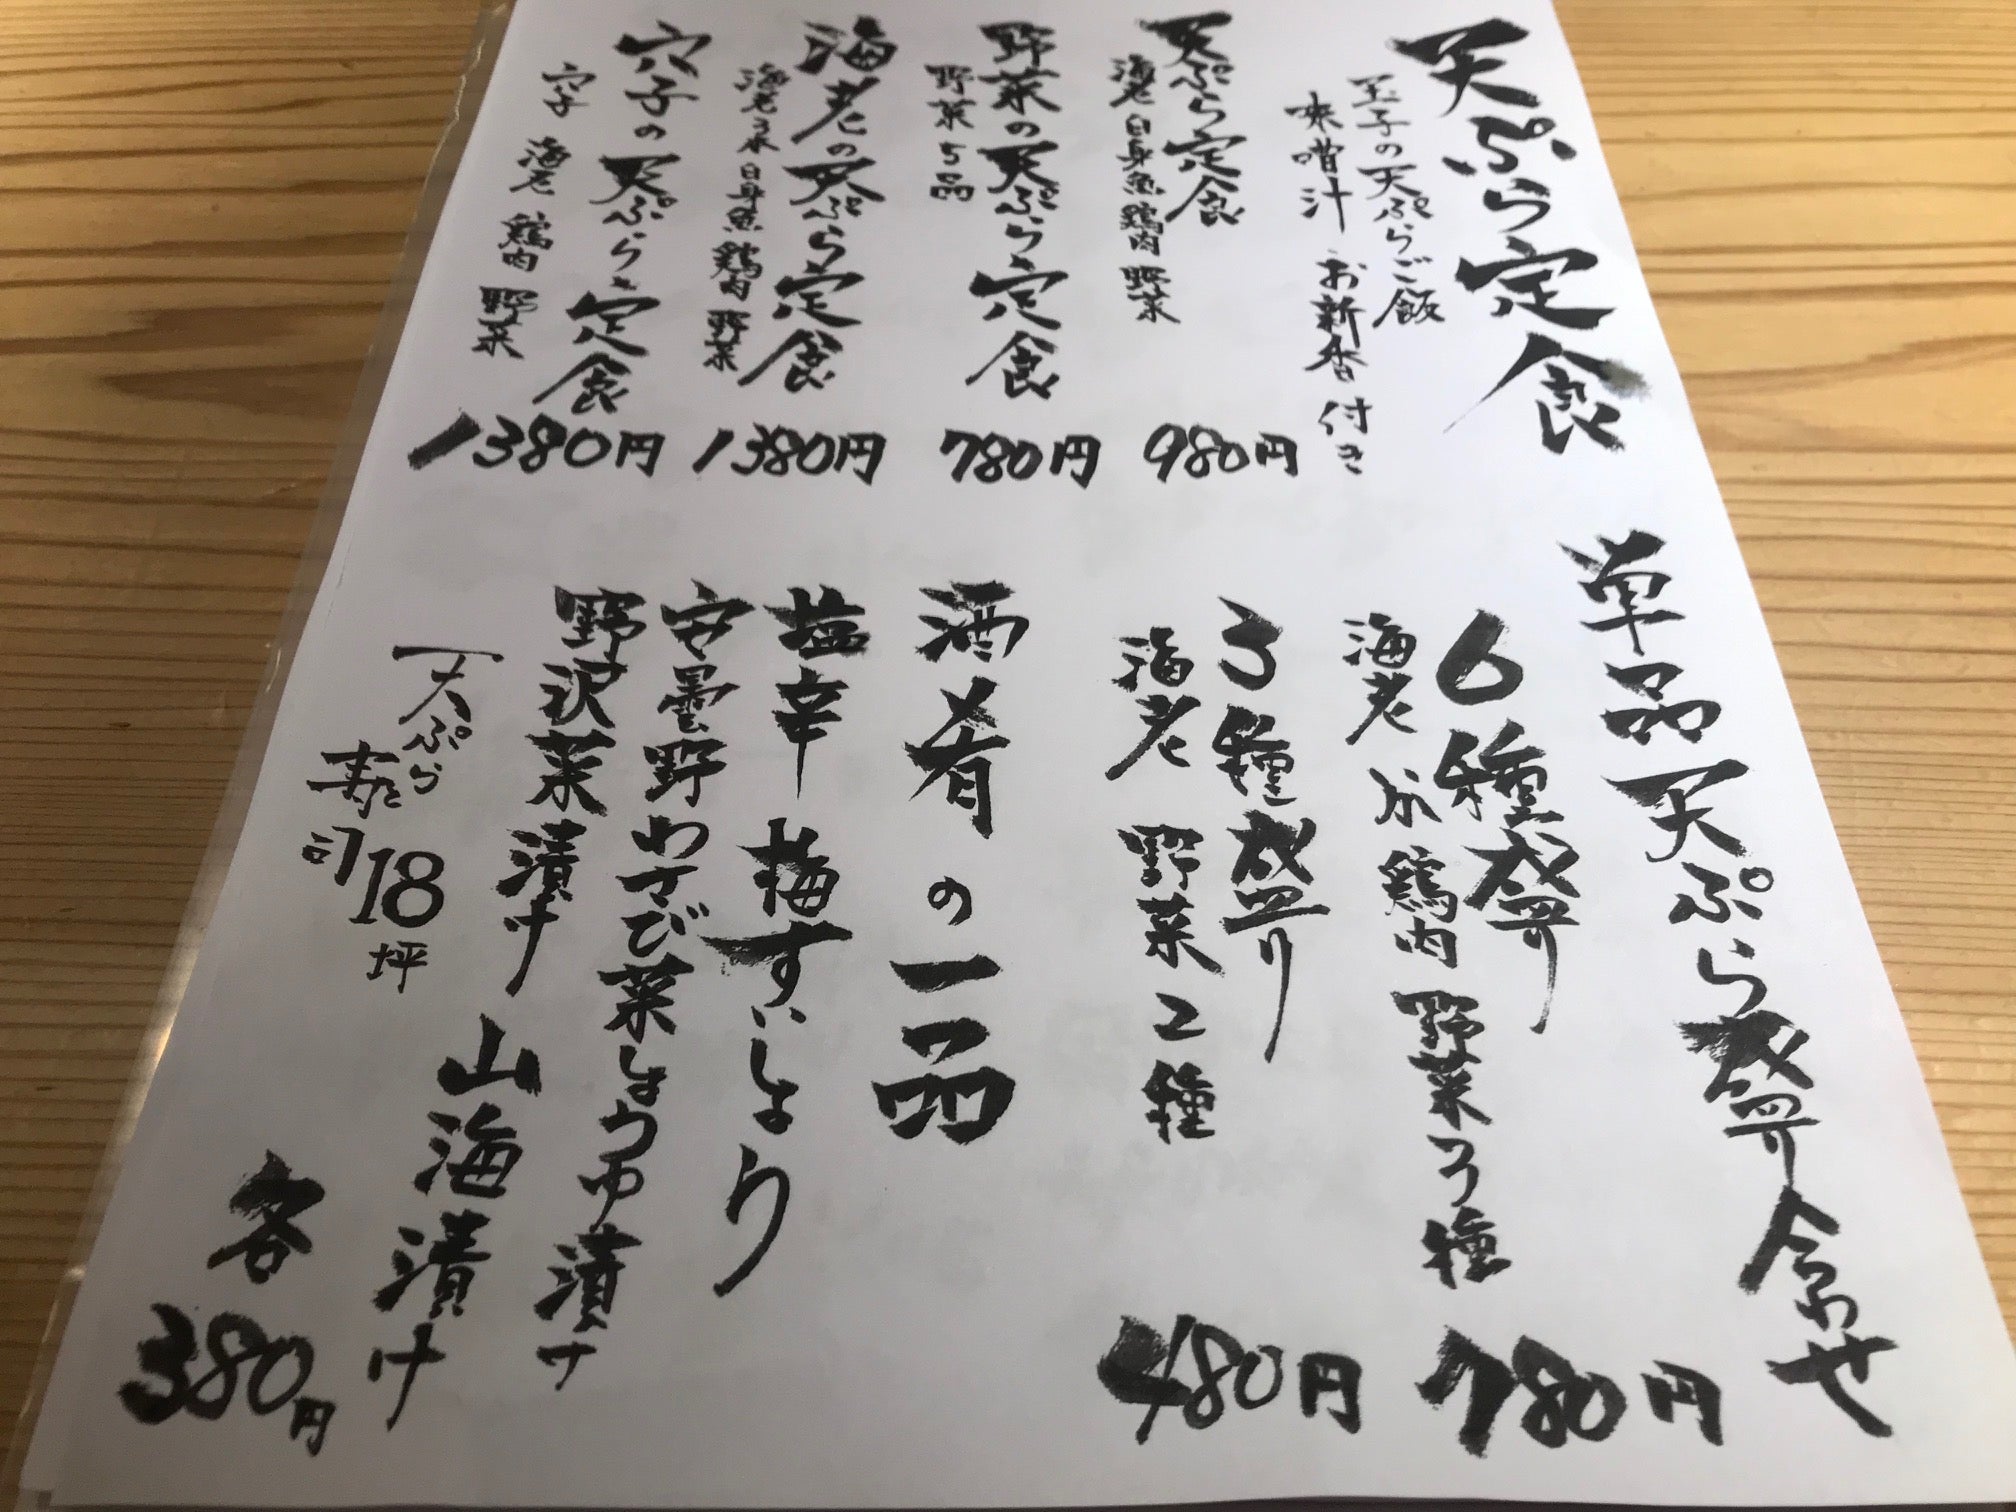 天ぷら定食
玉子の天ぷらご飯
味噌汁 お新香付き
天ぷら定食 980円
海老 白身魚 鶏肉 野菜
野菜の天ぷら定食 780円
野菜5品
海老の天ぷら定食 1380円
海老3本 白身魚 鶏肉 野菜
穴子の天ぷら定食 1380円
穴子 海老 鶏肉 野菜
単品天ぷら盛り合わせ
6種盛り 780円
海老 鶏肉 野菜3種
3種盛り 480円
海老 野菜2種
酒肴の一品
塩辛 梅すいしょう
安曇野わさび菜しょうゆ漬け
野沢菜漬け 山海漬け
各380円
天ぷら
寿司 18坪